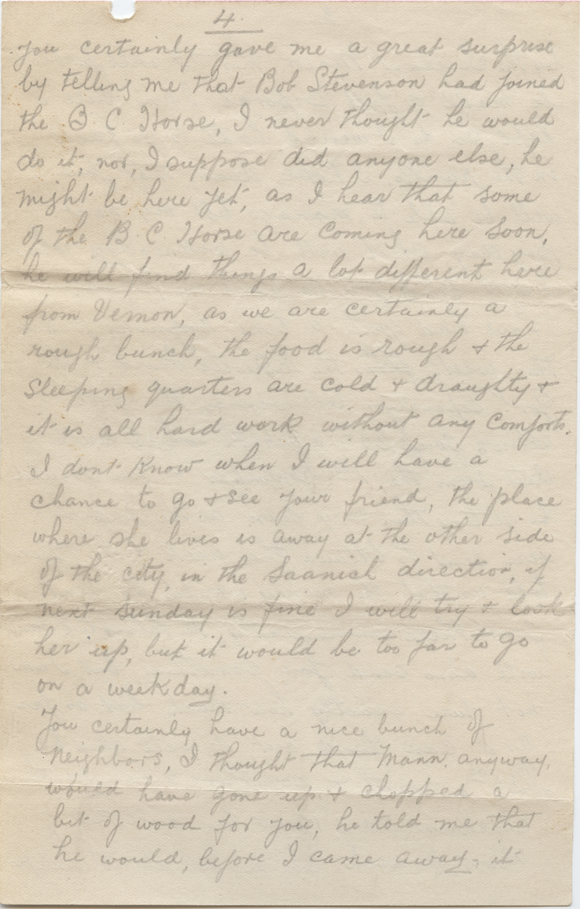 4.
You certainly gave me a great surprise
by telling me that Bob Stevenson had joined
the B C Horse, I never thought he would
do it, nor, I suppose did anyone else, he
might be here yet, as I hear that some
of the B.C Horse are coming here soon,
he will find things a lot different here
from Vernon, as we are certainly a
rough bunch, the food is rough & the
sleeping quarters are cold & draughty &
it is all hard work without any comforts.
I dont know when I will have a
chance to go & see your friend, the place
where she lives is away at the other side
of the city, in the Saanich direction, if
next sunday is fine I will try & look
her up, but it would be too far to go
on a weekday.
You certainly have a nice bunch of
Neighbors, I thought that Mann, anyway,
would have gone up & chopped a
bit of wood for you, he told me that
he would, before I came away, it